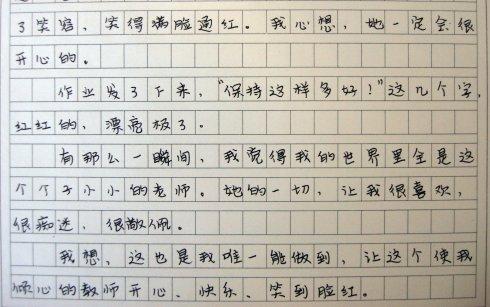 了笑容，笑得满脸通红。我心想，她一定会很
开心的。
作业发了下来，“保持这样多好！”这几个字，
红红的，漂亮极了。
有那么一瞬间，我觉得我的世界里全是这
个个子小小的老师。她的一切，让我很喜欢，
很痴迷，很敬佩。
我想，这也是我唯一能做到，让这个使我
倾心的教师开心、快乐、笑到脸红。